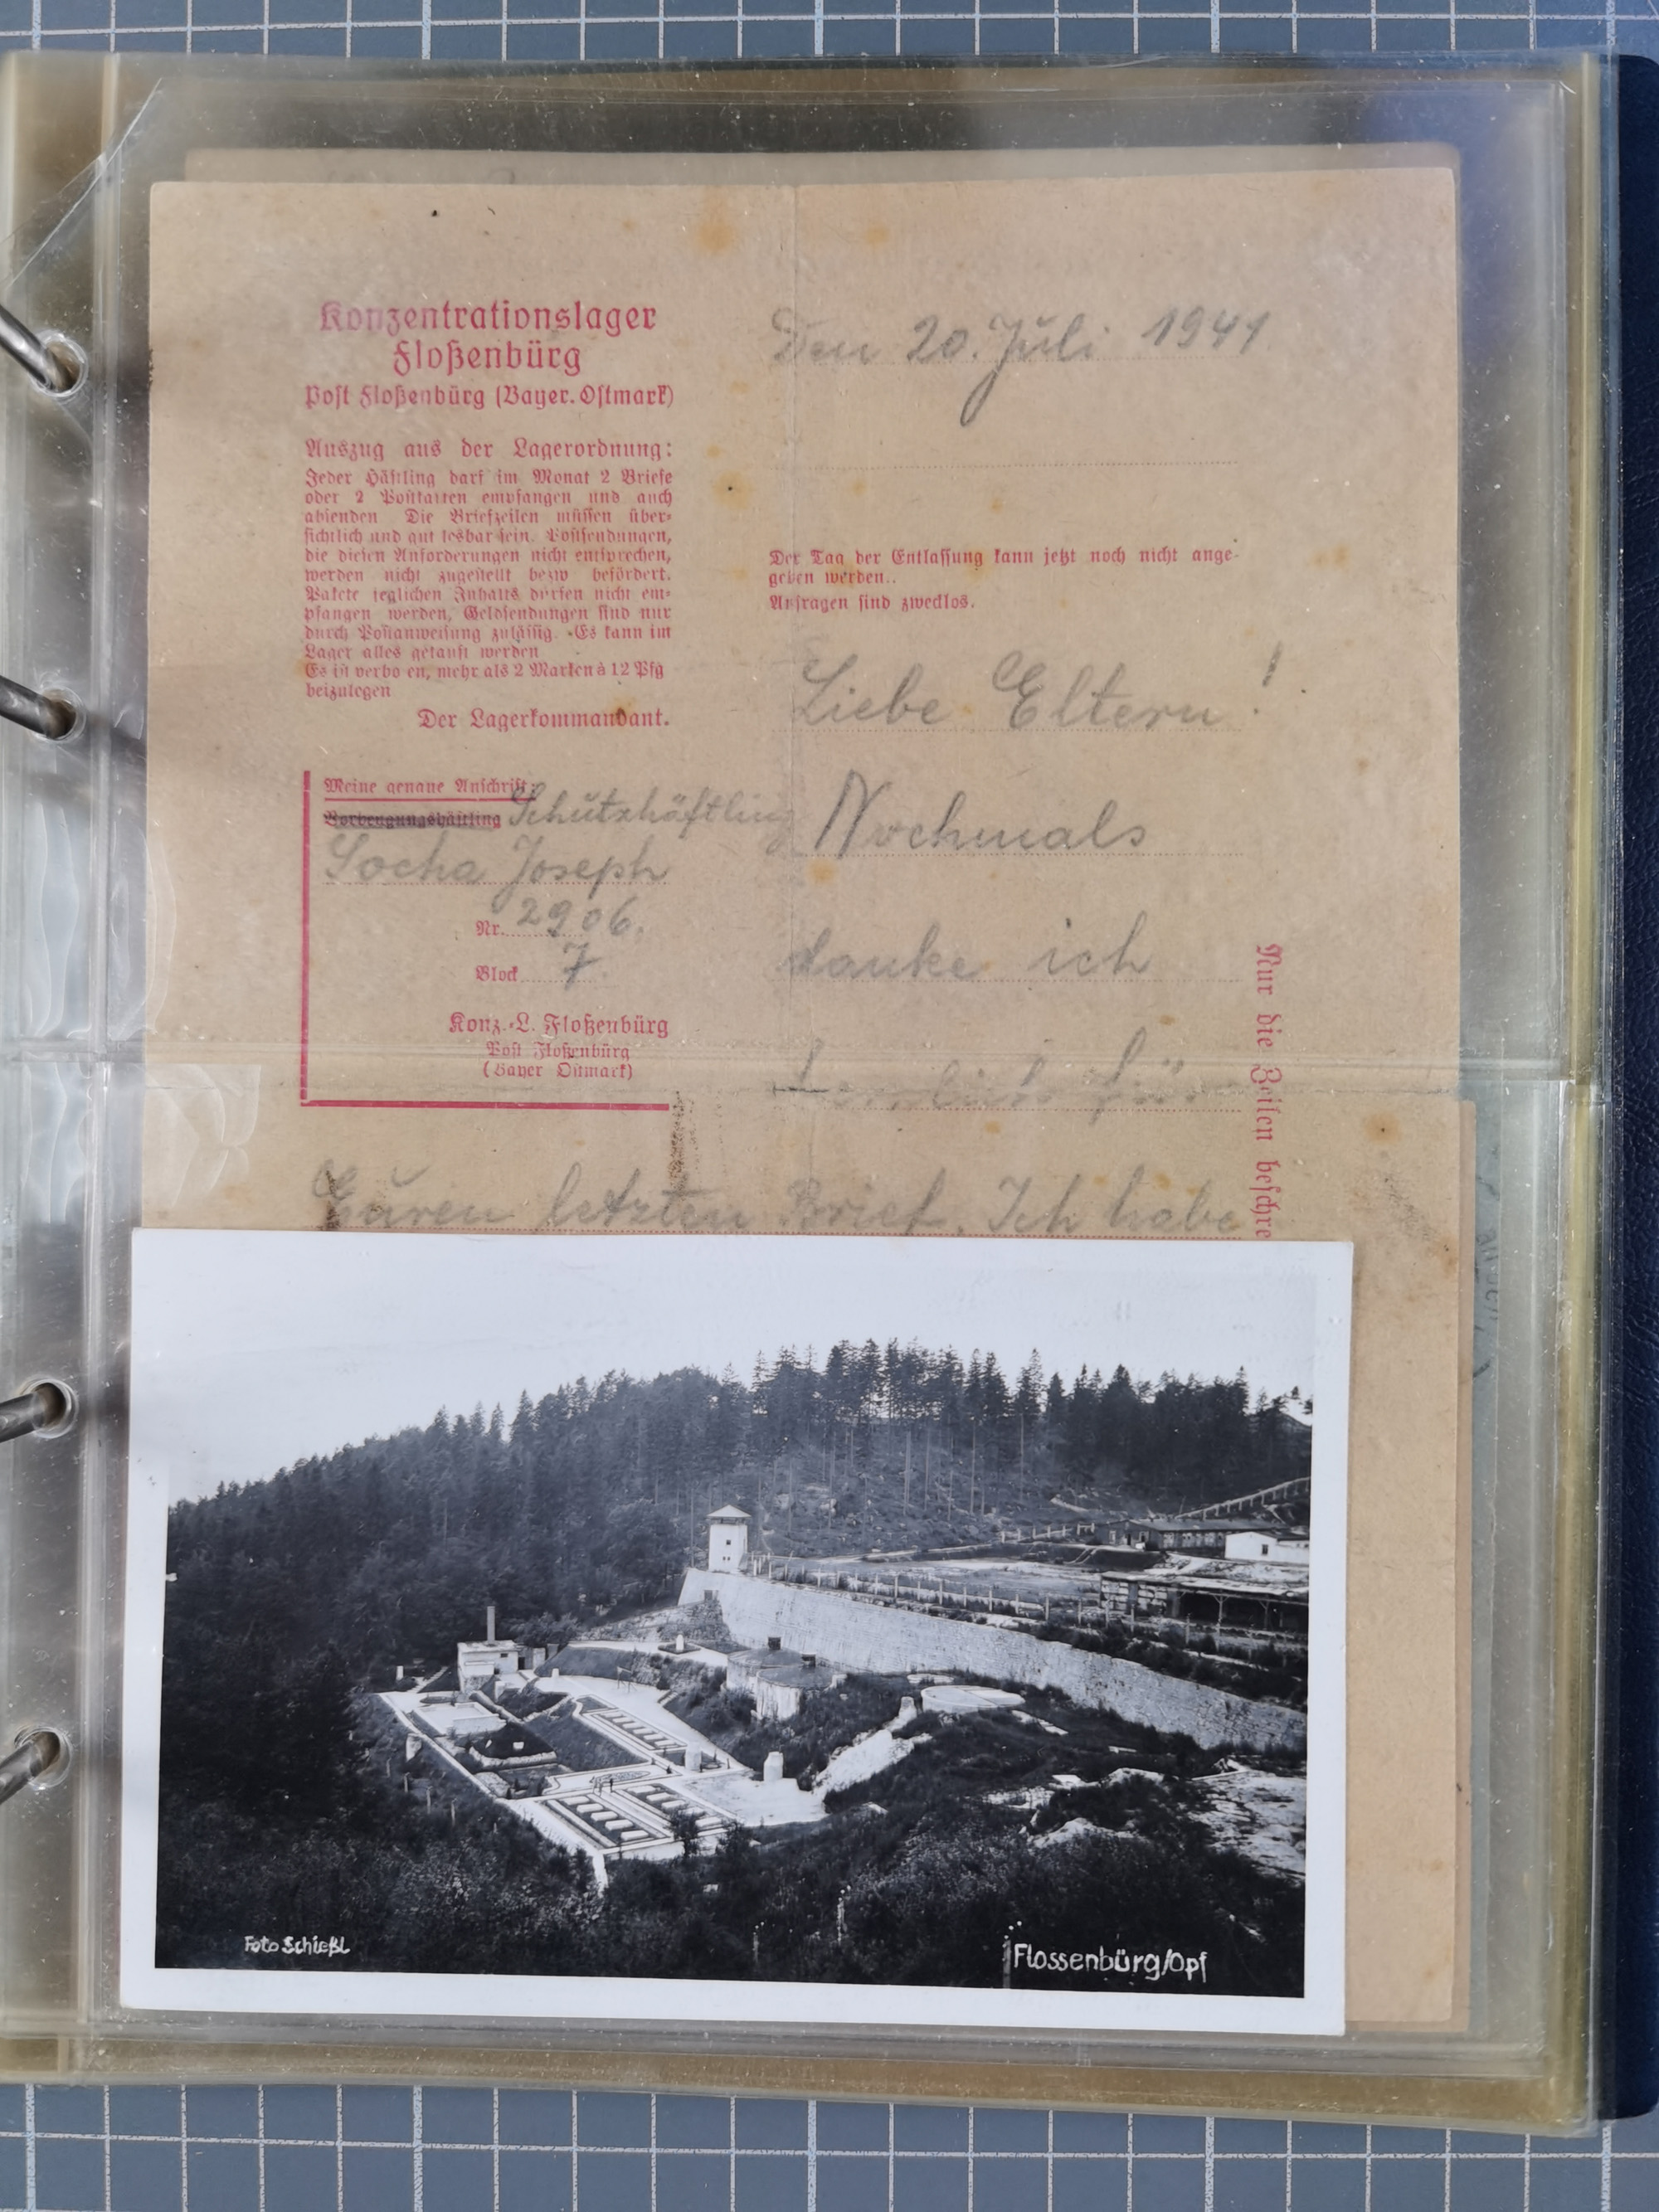 Konzentrationslager
Floßenbürg
Post Floßenbürg (Bayer. Ostmark)
Auszug aus der Lagerordnung:
Jeder Häftling darf im Monat 2 Briefe
oder 2 Postkarten empfangen und auch
absenden Die Briefzeilen müssen über-
sichtlich und gut lesbar sein. Postsendungen,
die diesen Anforderungen nicht entsprechen,
werden nicht zugestellt bezw befördert.
Pakete jeglichen Inhalts dürfen nicht em-
pfangen werden, Geldsendungen sind nur
durch Postanweisung zulässig. Es kann im
Lager alles gekauft werden
Es ist verbo en, mehr als 2 Marken à 12 Pfg
beizulegen
Der Lagerkommandant.
Meine genaue Anschrift:
Vorbeugungshäftling Schutzhäftling
Socha Joseph
Nr. 2906.
Block 7.
Konz.-L. Floßenbürg
Post Floßenbürg
(Bayer Ostmark)
Den 20. Juli 1941.
Der Tag der Entlassung kann jetzt noch nicht ange-
geben werden..
Anfragen sind zwecklos.
Liebe Eltern!
Nochmals
danke ich
herzlich für
Euren letzten Brief. Ich habe
Nur die Zeilen beschre
Foto Schießl
Flossenbürg/Opf